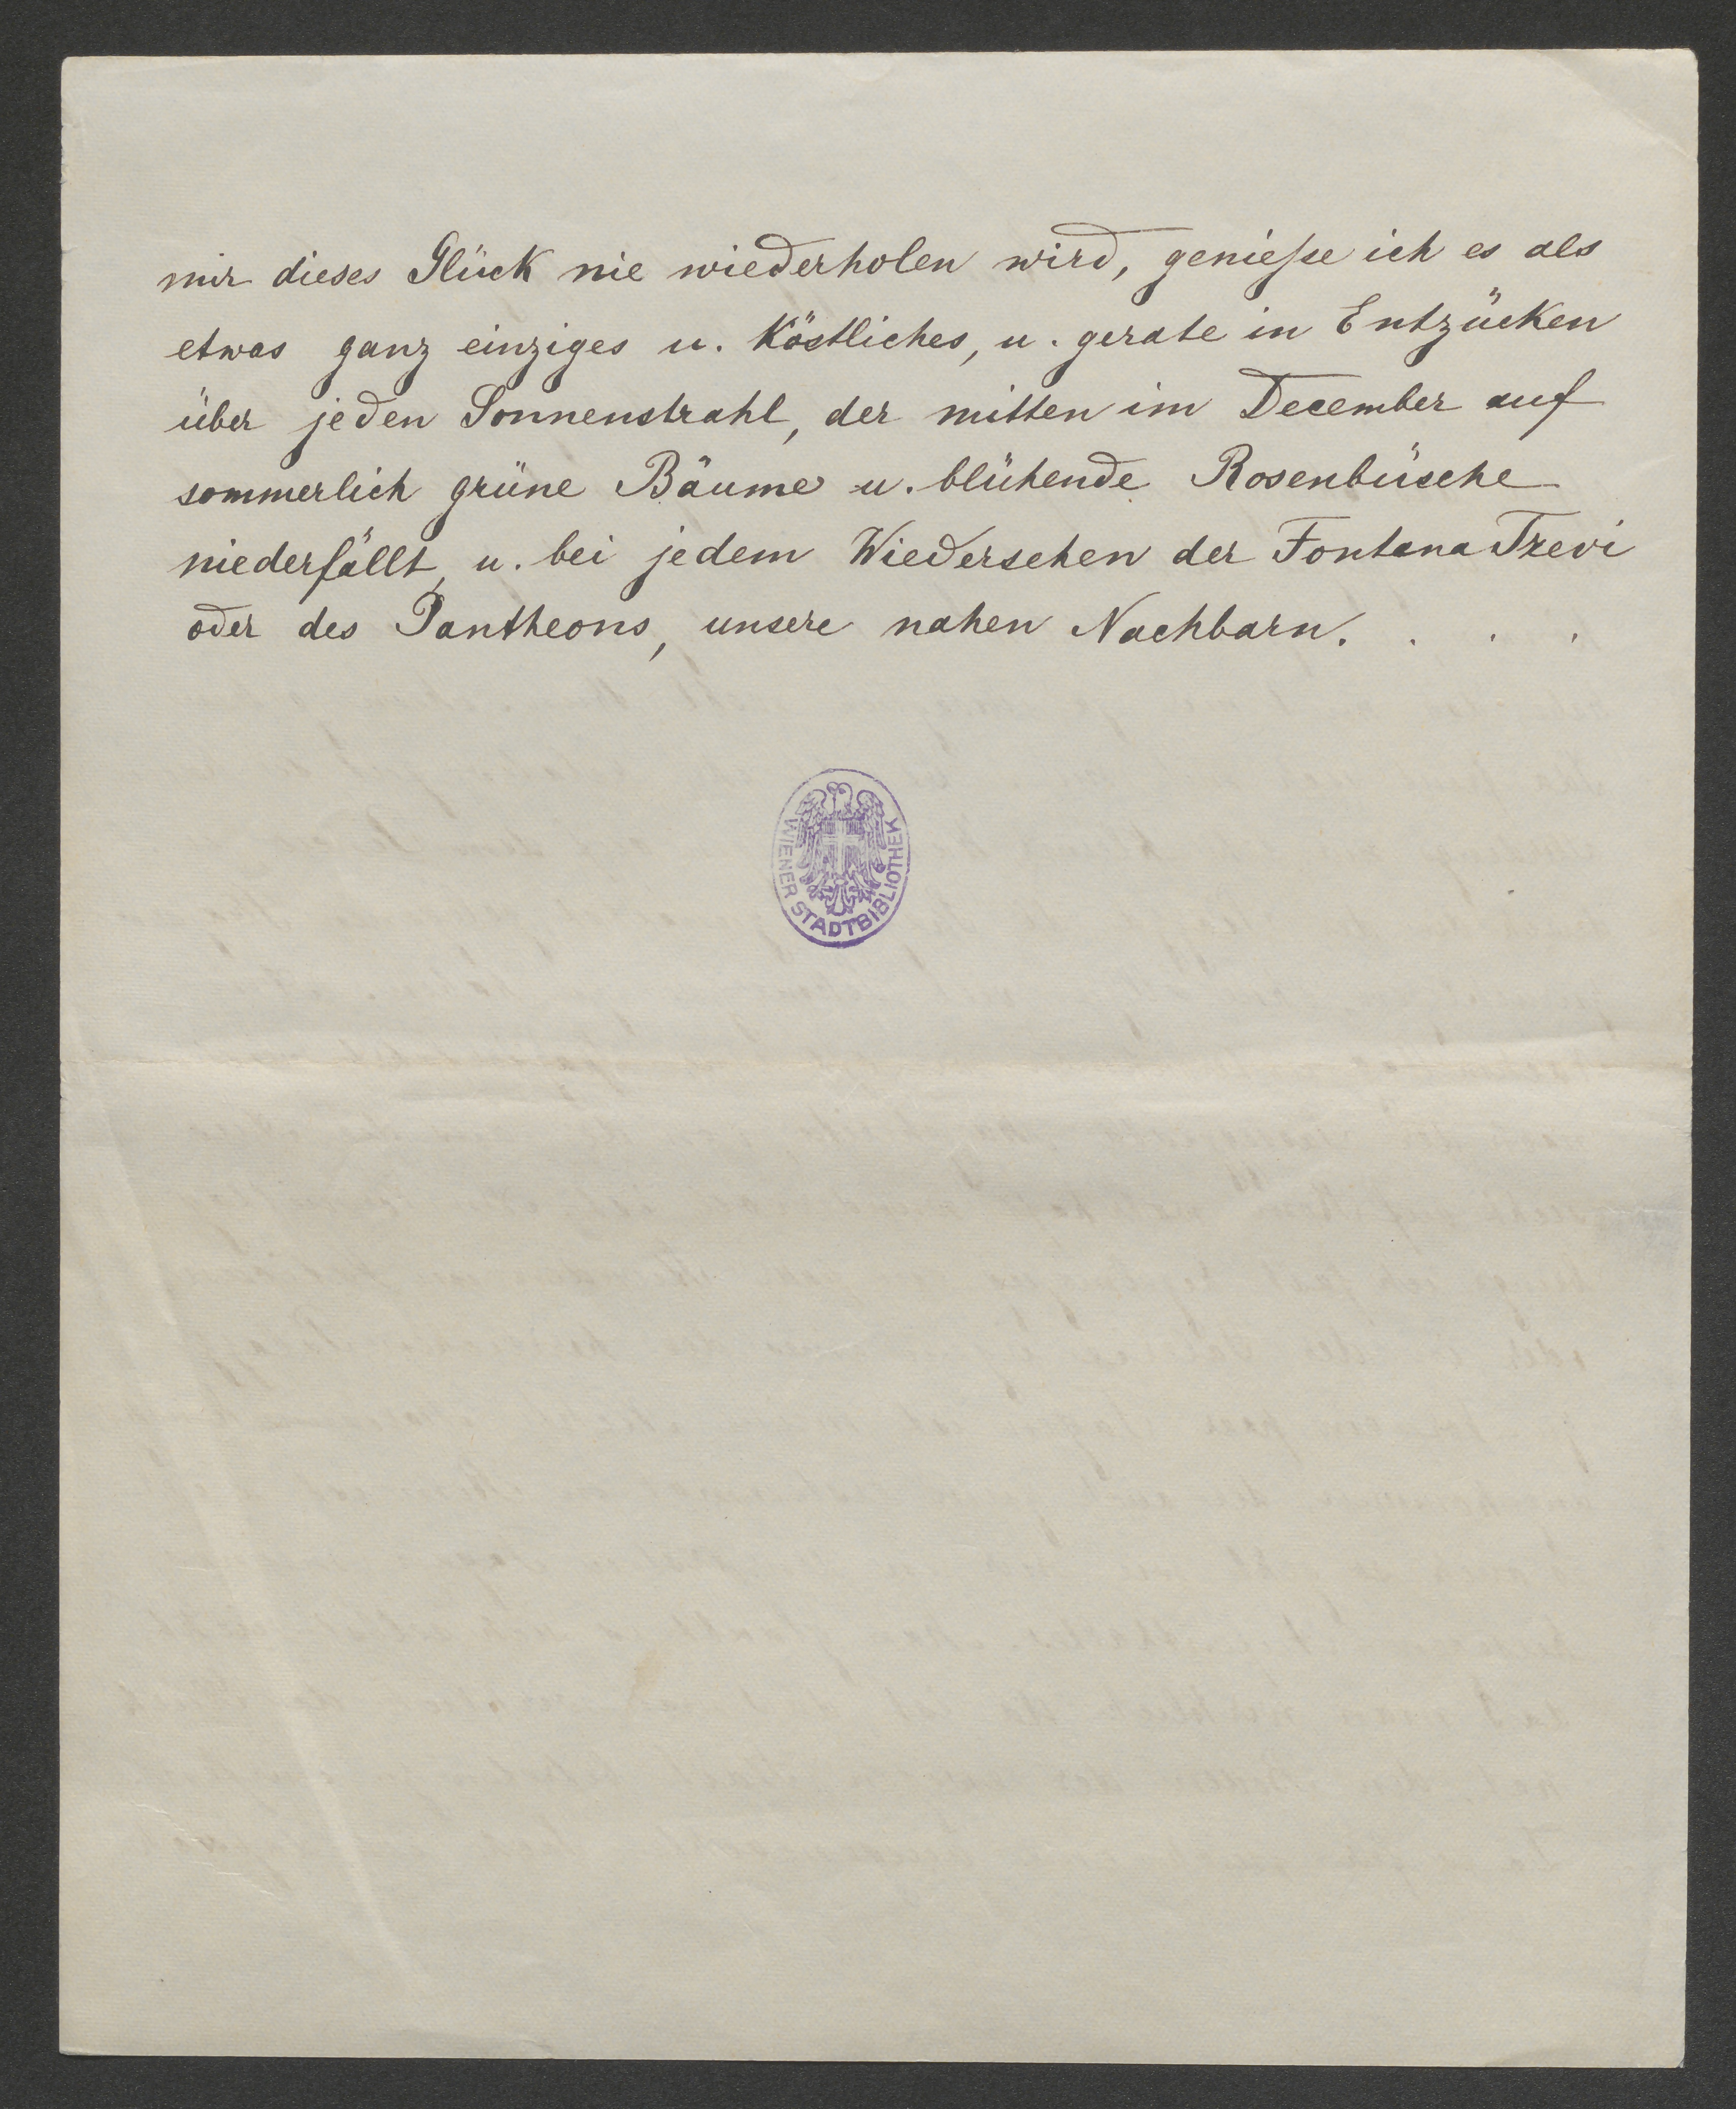 mir dieses Glück nie wiederholen wird, genieße ich es als
etwas ganz einziges u. Köstliches, u. gerate in Entzücken
über jeden Sonnenstrahl, der mitten im December auf
sommerlich grüne Bäume u. blühende Rosenbüsche
niederfällt, u. bei jedem Wiedersehen der Fontana Trevi
oder des Pantheons, unsere nahen Nachbarn. . . .
WIENER STADTBIBLIOTHEK